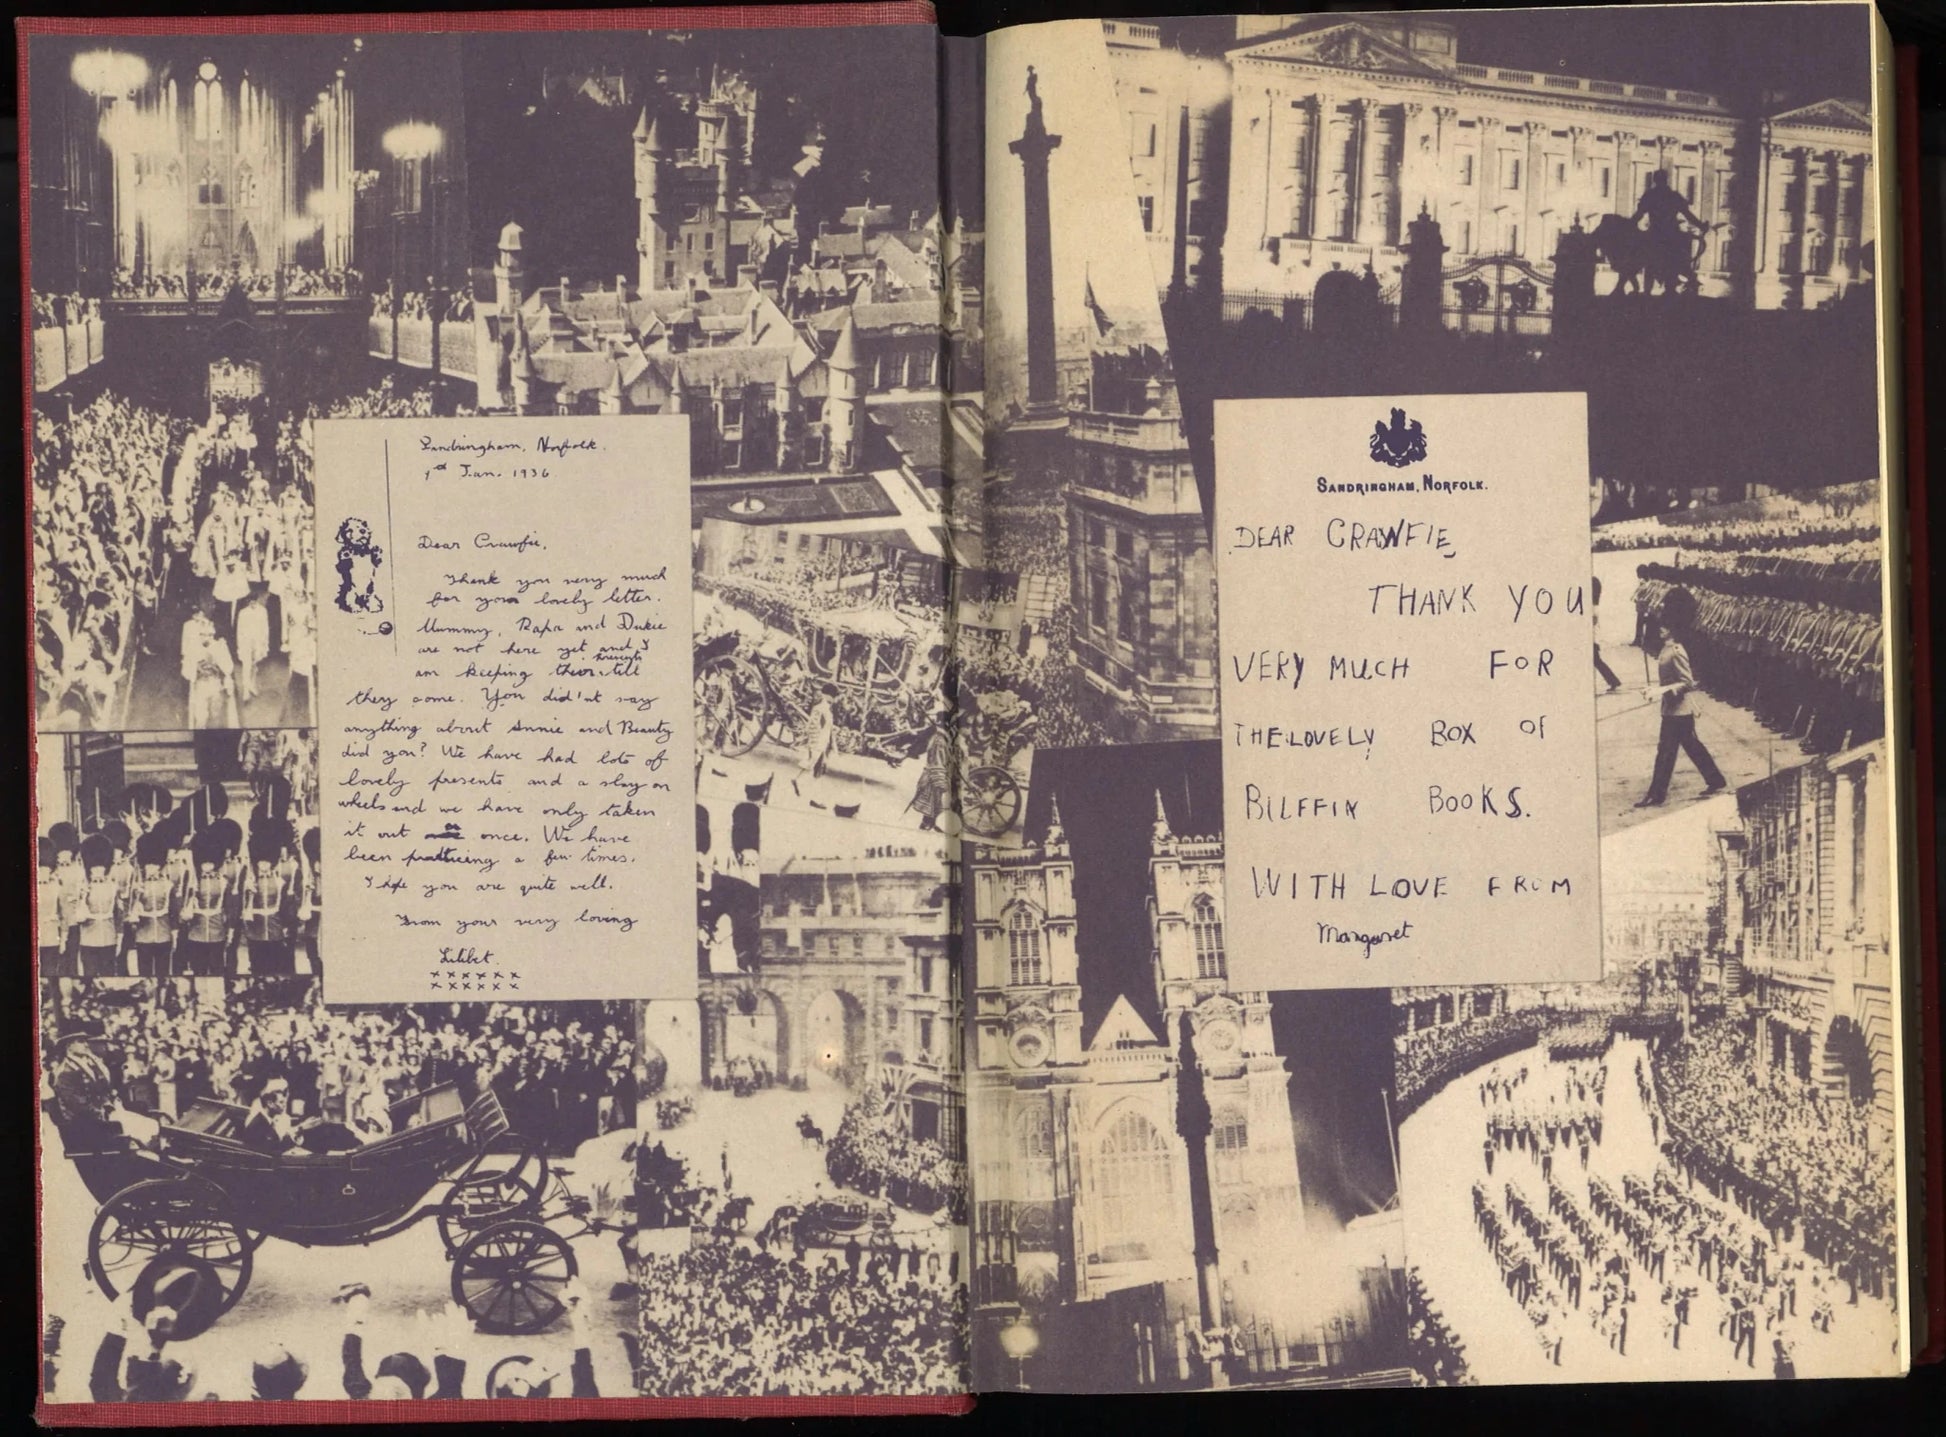 Sandringham, Norfolk.
1st Jan. 1936
Dear Crawfie,
Thank you very much
for your lovely letter.
Mummy, Papa and Dukie
are not here yet and I
am keeping their presents till
they come. You did'nt say
anything about Annie and Beauty
did you? We have had lots of
lovely presents and a slay on
wheels and we have only taken
it out once. We have
been practicing a few times.
I hope you are quite well.
From your very loving
Lilibet.
x x x x x x
x x x x x x
SANDRINGHAM, NORFOLK.
DEAR CRAWFIE,
THANK YOU
VERY MUCH FOR
THE LOVELY BOX OF
BILFFIN BOOKS.
WITH LOVE FROM
Margaret